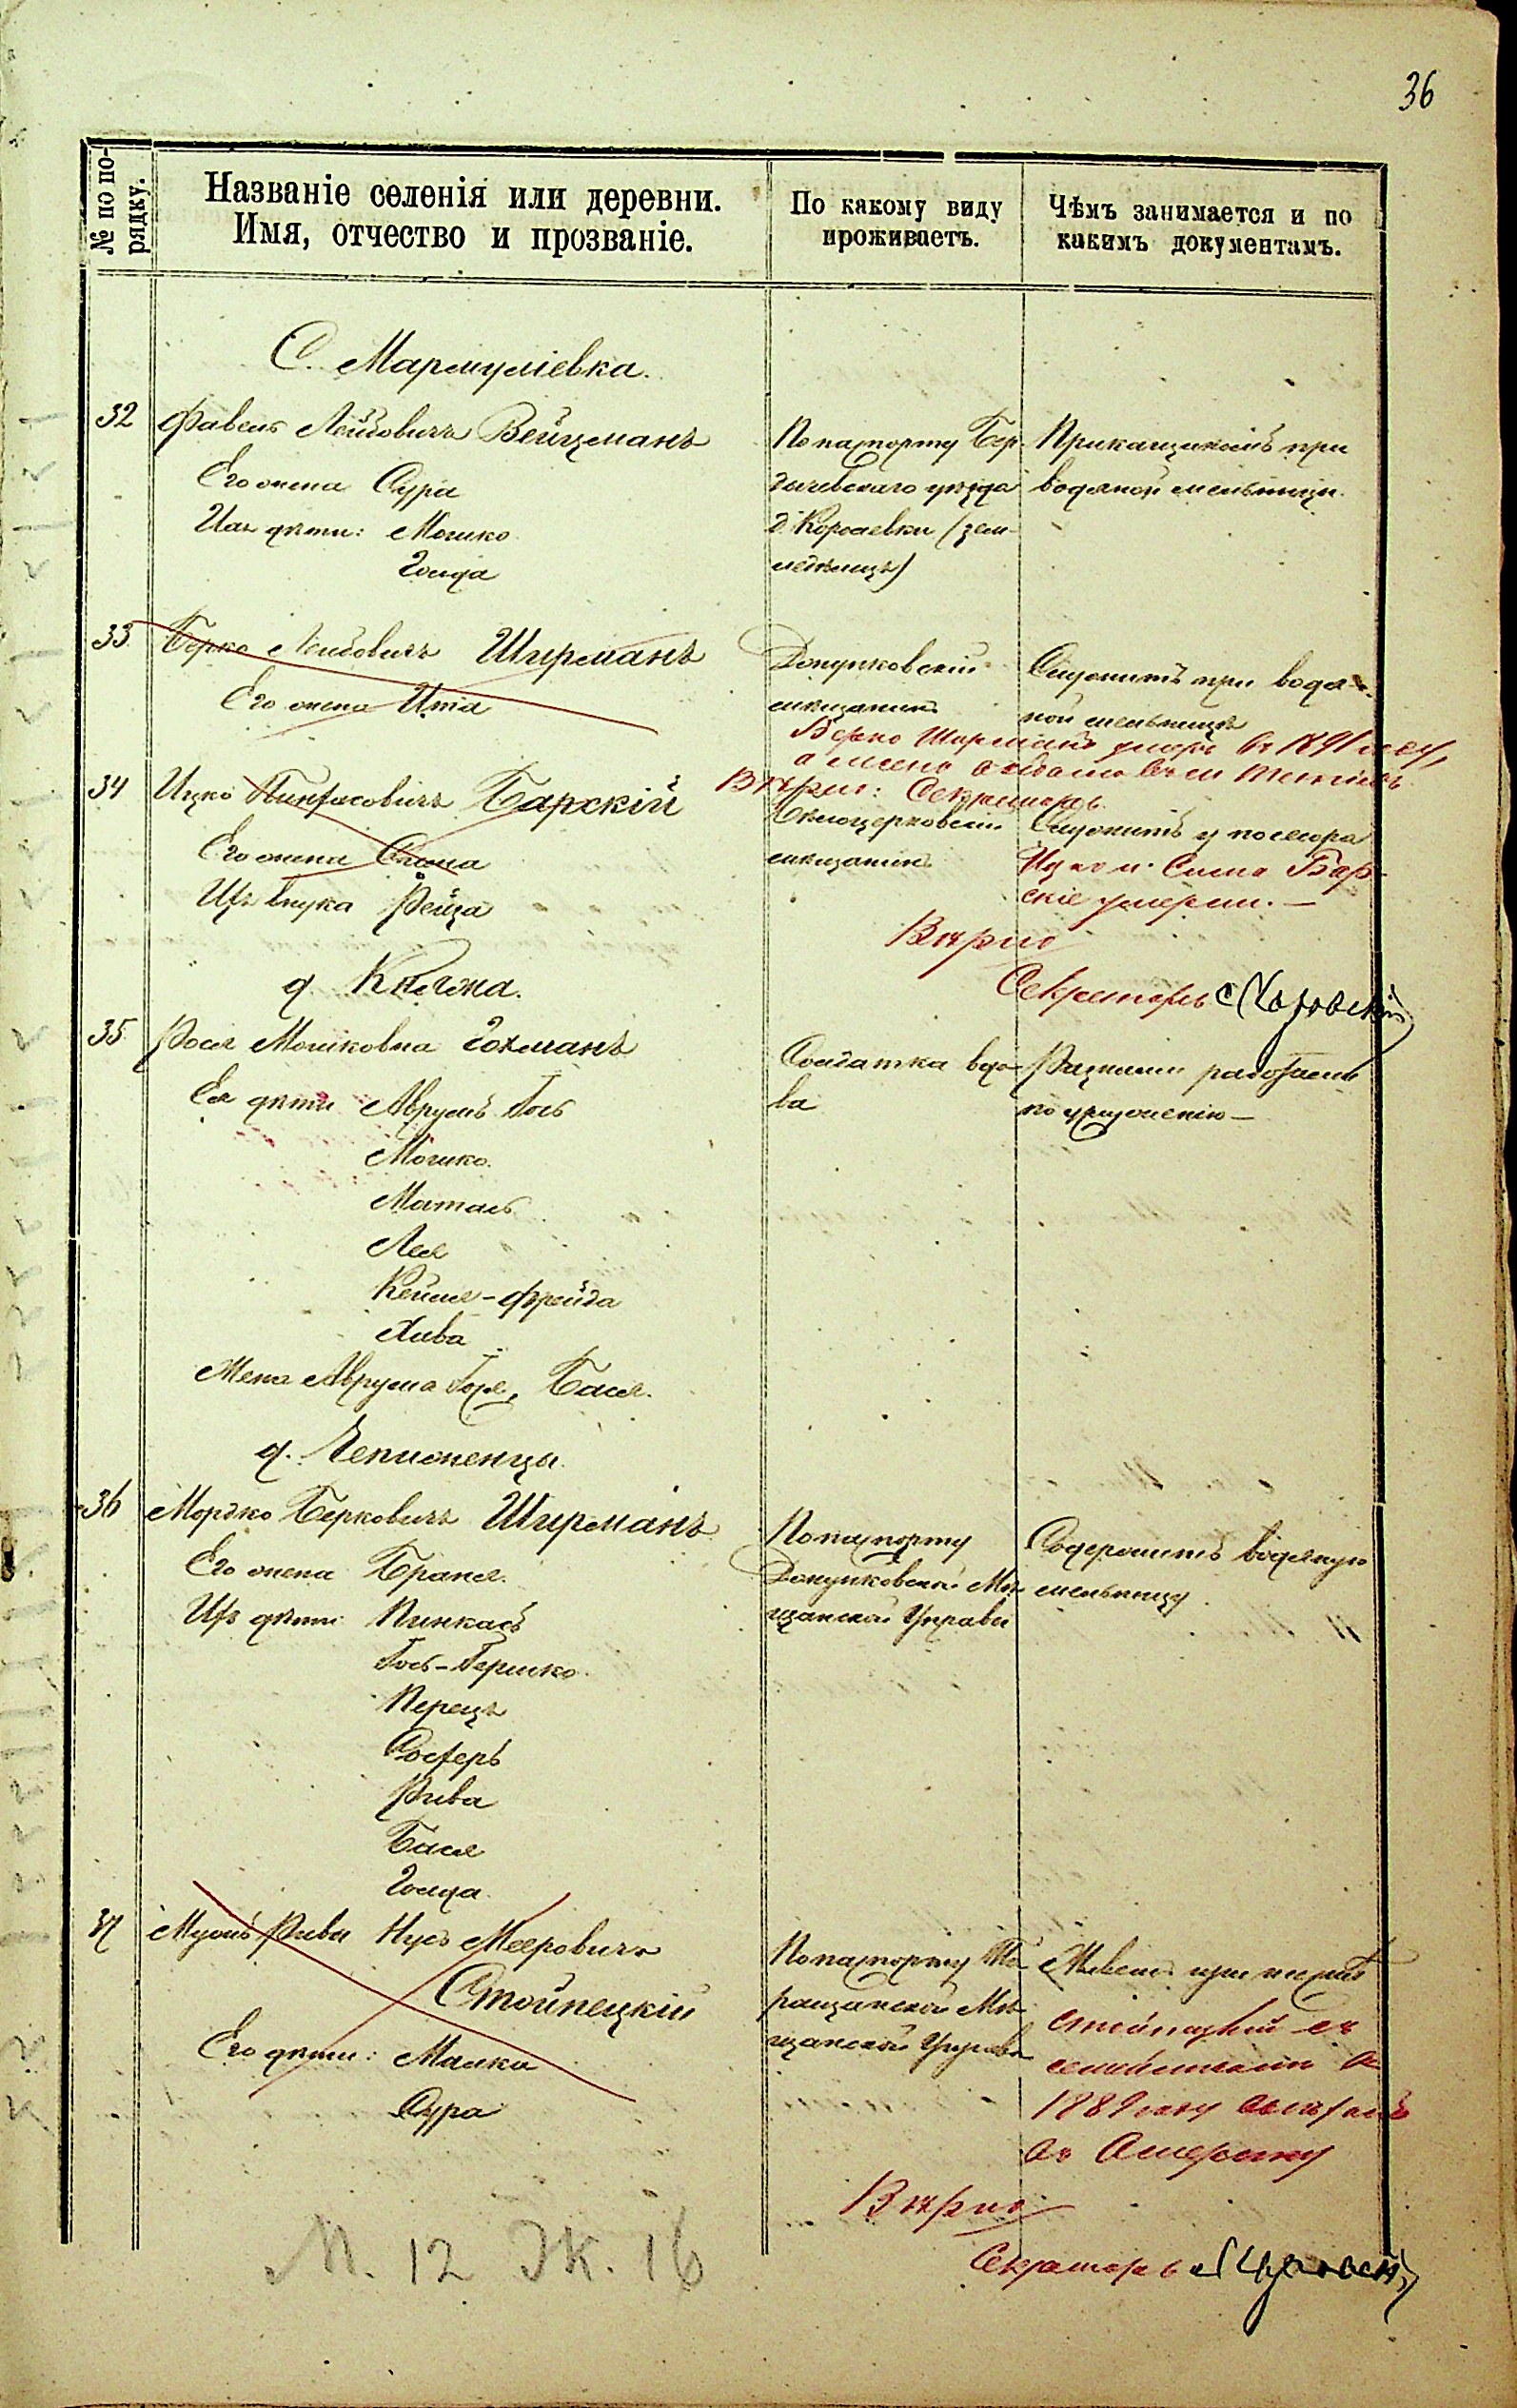 36
№ по по-
рядку.
Названіе селенія или деревни.
Имя, отчество и прозваніе.
По какому виду
проживаетъ.
Чѣмъ занимается и по
какимъ документамъ.
С. Мармуліевка.
32 Фавель Лейбовичъ Вейцманъ
Его жена Сура
Ихъ дѣти: Мошко
Голда
По паспорту Бер-
дичевскаго уѣзда
д. Королевки (зем-
ледѣлецъ)
Прикащикомъ при
водяной мельницѣ.
33 Берко Лейбовичъ Ширманъ
Его жена Ита
мѣщанинъ
Служитъ при водя-
ной мельницѣ
Берко Ширманъ умеръ въ 1891 году,
Вѣрно: Секретарь
34 Ицко Пинхасовичъ Барскій
Его жена Сима
Ихъ внука Рейза
Бѣлоцерковскій
мѣщанинъ
Служитъ у посесора
Ицко и Сима Бар-
скіе умерли. —
Вѣрно
Секретарь
д. Княжа.
35 Рося Мошковна Гохманъ
Ея дѣти Аврумъ Гось
Мошко
Мотель
Лея
Кейля-Фрейда
Хива
Жена Аврума Гося, Бася.
Солдатка вдо-
ва
Разными работами
по хужденію —
д. Чепиженцы.
36 Мордко Берковичъ Ширманъ
Его жена Браня.
Ихъ дѣти Пинкасъ
Гось-Гершко
Перецъ
Рива
Бася
Голда
По паспорту
Мѣ-
щанской Управы
Содержитъ водяную
мельницу
37 Мужъ Ривы Нусъ Мееровичъ
Стойпецкій
Его дѣти: Малка
Сура
По паспорту Та-
ращанской Мѣ-
щанской Управы
Живетъ при
Стойпецкій съ
семействомъ въ
1889 году выѣхалъ
въ Америку
Вѣрно
Секретарь
М. 12 Ж. 16